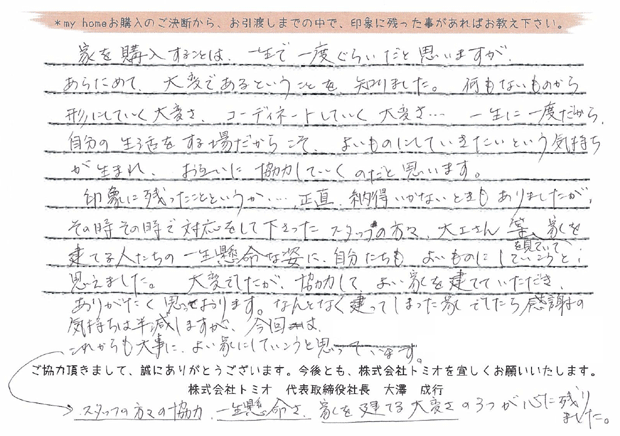 *my homeお購入のご決断から、お引渡しまでの中で、印象に残った事があればお教え下さい。
家を購入することは、一生で一度ぐらいだと思いますが、
あらためて、大変であるということを知りました。何もないものから
形にしていく大変さ、コーディネートしていく大変さ… 一生に一度だから、
自分の生活をする場だからこそ、よいものにしていきたいという気持ち
が生まれ、お互いに協力していくのだと思います。
印象に残ったことというか…、正直、納得いかないときもありましたが、
その時その時で対応をして下さったスタッフの方々、大工さん等、家を
建てる人たちの一生懸命な姿に、自分たちもよいものにしていこうと
を見ていて
思えました。大変でしたが、協力して、よい家を建てていただき、
ありがたく思っております。なんとなく建ってしまった家でしたら感謝の
気持ちは半減しますが、今回は、
これからも大事に、よい家にしていこうと思っています。
ご協力頂きまして、誠にありがとうございます。今後とも、株式会社トミオを宜しくお願いいたします。
株式会社トミオ 代表取締役社長 大澤 成行
スタッフの方々の協力、一生懸命さ、家を建てる大変さの3つが心に残り
ました。